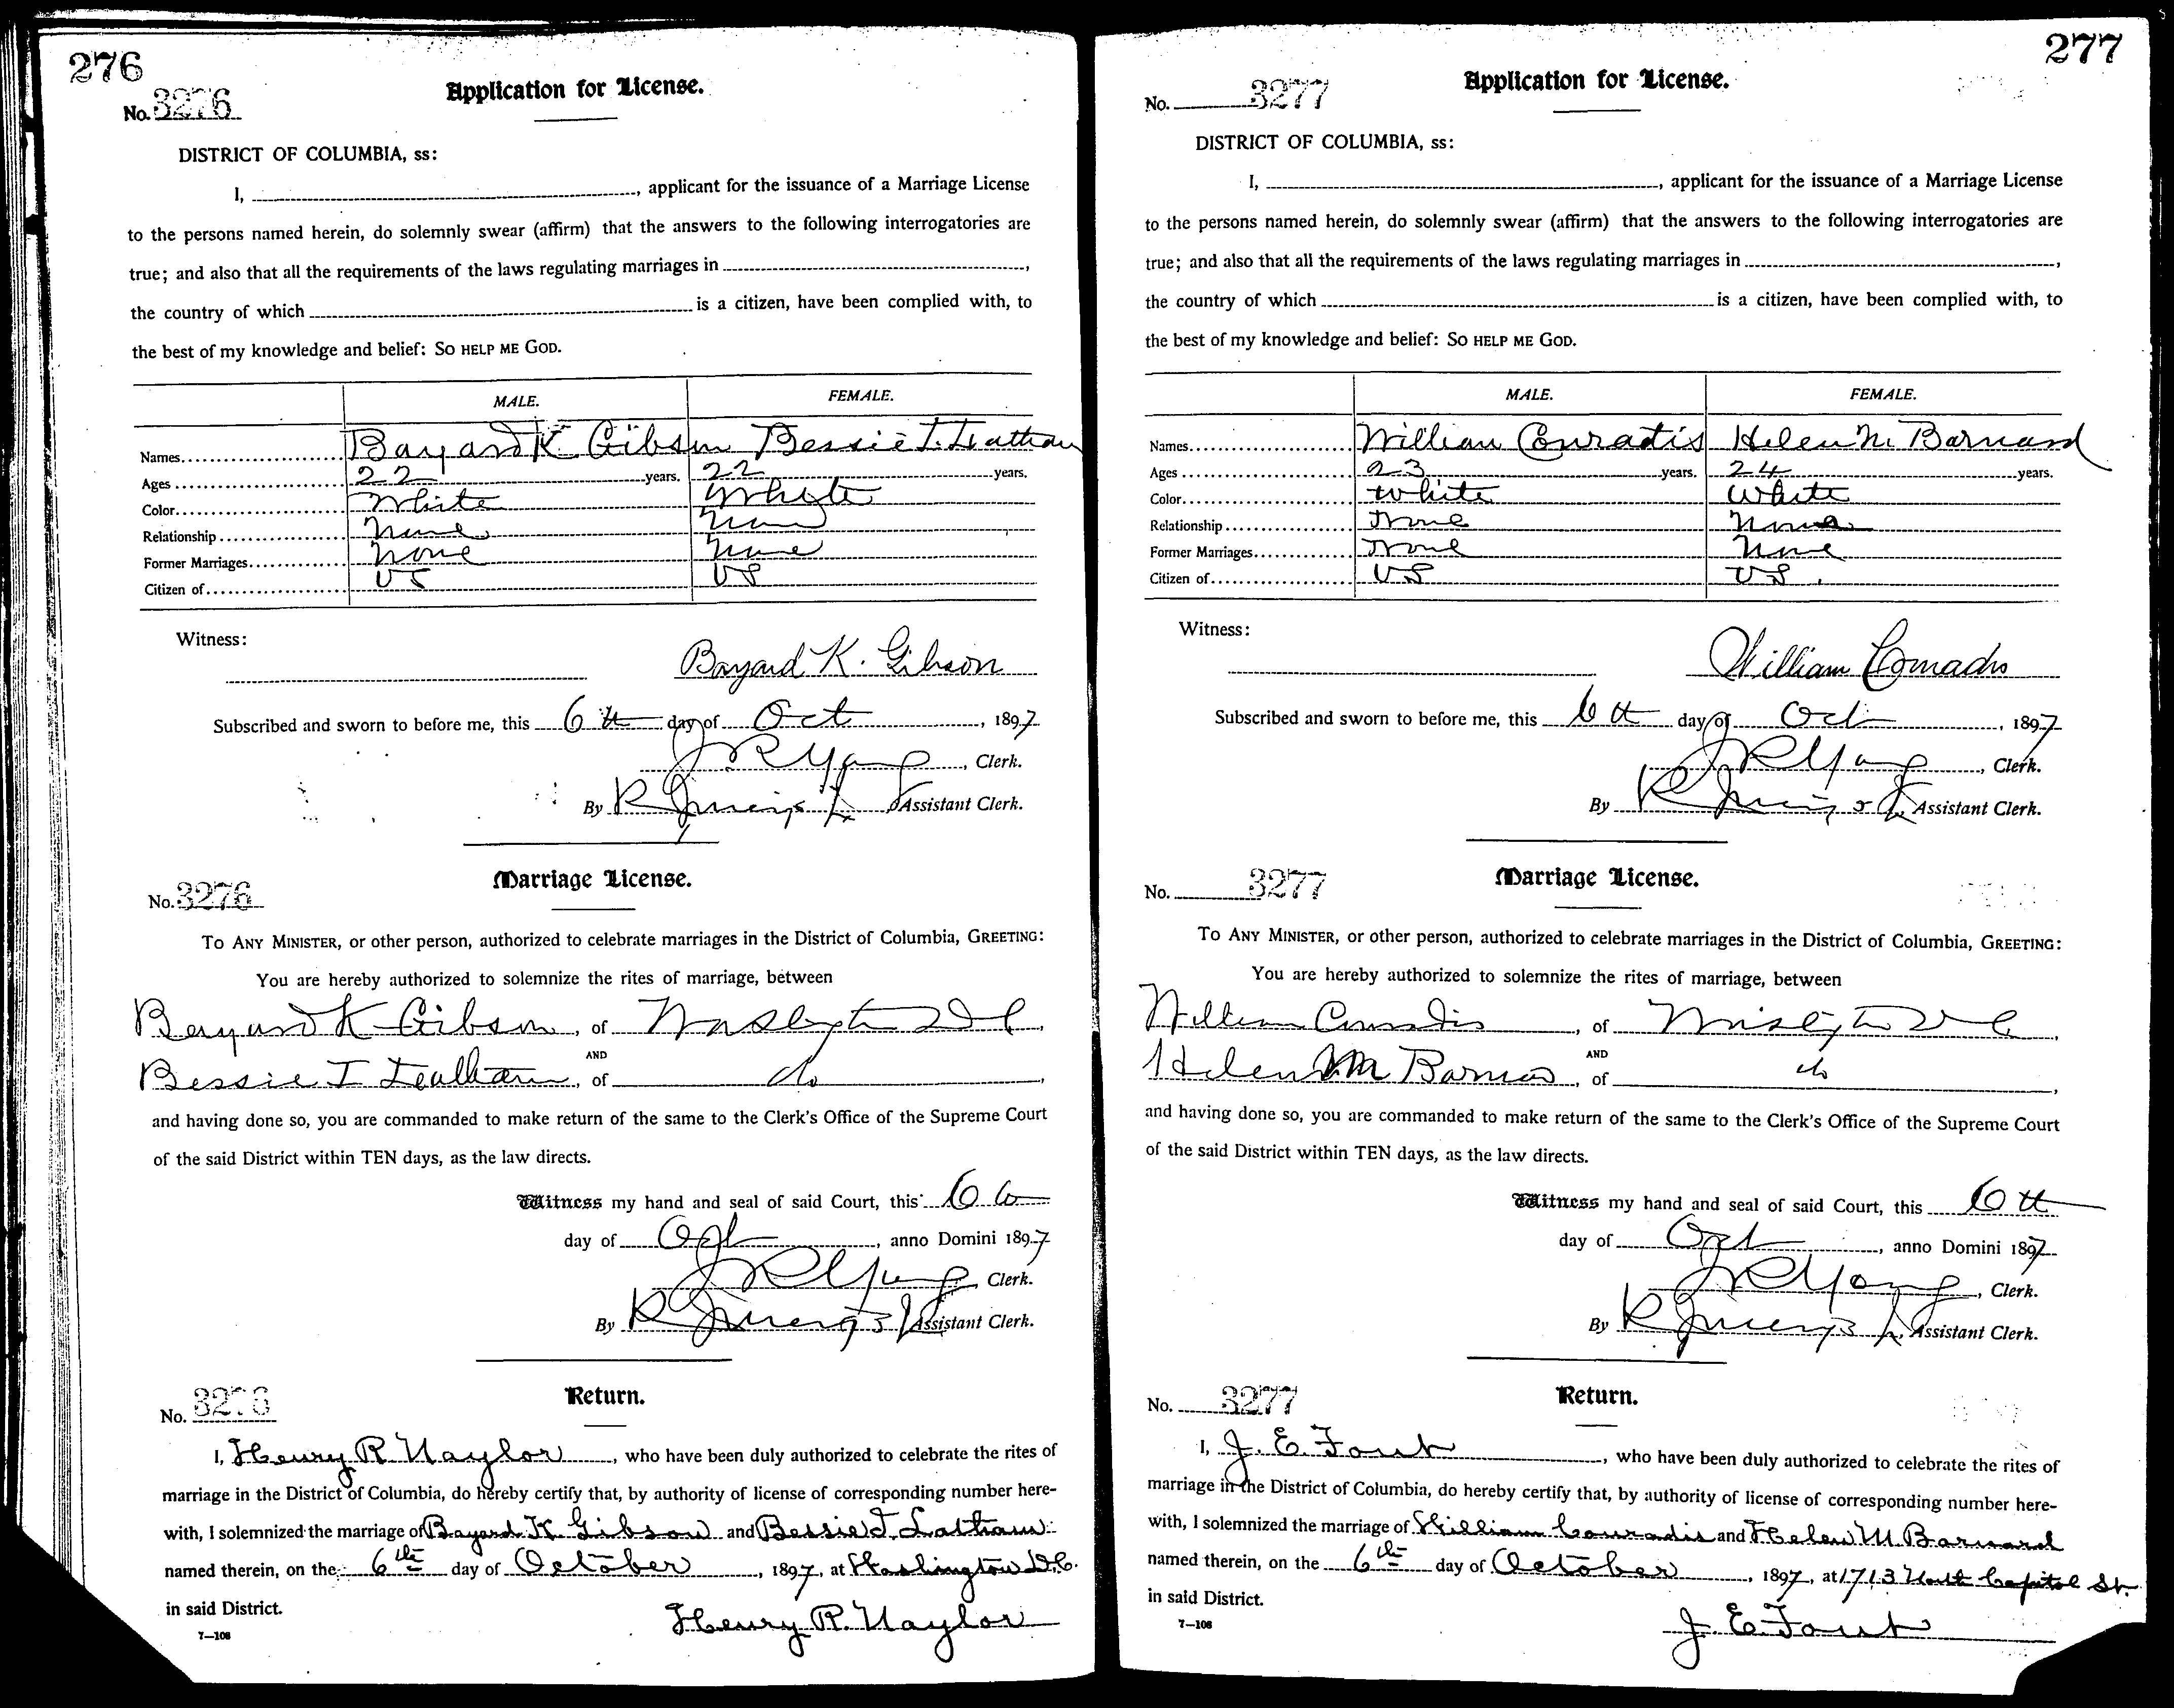 276
No. 3276
Application for License.
DISTRICT OF COLUMBIA, ss:
I, , applicant for the issuance of a Marriage License
to the persons named herein, do solemnly swear (affirm) that the answers to the following interrogatories are
true; and also that all the requirements of the laws regulating marriages in ,
the country of which is a citizen, have been complied with, to
the best of my knowledge and belief: SO HELP ME GOD.
MALE. FEMALE.
Names Bayard K Gibson Bessie I. Latham
Ages 22 years. 22 years.
Color White White
Relationship None None
Former Marriages None None
Citizen of US US
Witness:
Bayard K. Gibson
Subscribed and sworn to before me, this 6th day of Oct , 1897
J R Young , Clerk.
By Assistant Clerk.
Marriage License.
No. 3276
To ANY MINISTER, or other person, authorized to celebrate marriages in the District of Columbia, GREETING:
You are hereby authorized to solemnize the rites of marriage, between
Bayard K Gibson , of Washington DC ,
AND
Bessie I Latham , of do ,
and having done so, you are commanded to make return of the same to the Clerk's Office of the Supreme Court
of the said District within TEN days, as the law directs.
Witness my hand and seal of said Court, this 6th
day of Oct , anno Domini 1897
J R Young Clerk.
By Assistant Clerk.
Return.
No. 3276
I, Henry R. Naylor , who have been duly authorized to celebrate the rites of
marriage in the District of Columbia, do hereby certify that, by authority of license of corresponding number here-
with, I solemnized the marriage of Bayard K. Gibson and Bessie I. Latham
named therein, on the 6th day of October , 1897, at Washington D.C.
in said District.
Henry R. Naylor
7—108
277
No. 3277
Application for License.
DISTRICT OF COLUMBIA, ss:
I, , applicant for the issuance of a Marriage License
to the persons named herein, do solemnly swear (affirm) that the answers to the following interrogatories are
true; and also that all the requirements of the laws regulating marriages in ,
the country of which is a citizen, have been complied with, to
the best of my knowledge and belief: SO HELP ME GOD.
MALE. FEMALE.
Names William Conradis Helen M. Barnard
Ages 23 years. 24 years.
Color White White
Relationship None None
Former Marriages None None
Citizen of US US.
Witness:
William Conradis
Subscribed and sworn to before me, this 6th day of Oct , 1897
J R Young , Clerk.
By Assistant Clerk.
Marriage License.
No. 3277
To ANY MINISTER, or other person, authorized to celebrate marriages in the District of Columbia, GREETING:
You are hereby authorized to solemnize the rites of marriage, between
William Conradis , of Washington DC ,
AND
Helen M Barnard , of do ,
and having done so, you are commanded to make return of the same to the Clerk's Office of the Supreme Court
of the said District within TEN days, as the law directs.
Witness my hand and seal of said Court, this 6th
day of Oct , anno Domini 1897
J R Young , Clerk.
By Assistant Clerk.
Return.
No. 3277
I, J. E. Fout , who have been duly authorized to celebrate the rites of
marriage in the District of Columbia, do hereby certify that, by authority of license of corresponding number here-
with, I solemnized the marriage of William Conradis and Helen M. Barnard
named therein, on the 6th day of October , 1897, at 1713 North Capitol St.
in said District.
J. E. Fout
7—108